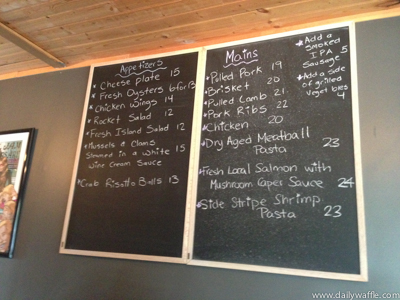 Appetizers
* Cheese plate 15
* Fresh Oysters 6 for 13
* Chicken wings 14
* Rocket Salad 12
* Fresh Island Salad 12
* Mussels & Clams
Steamed in a white 15
wine Cream Sauce
* Crab Risotto Balls 13
Mains
* Pulled Pork 19
* Brisket 20
* Pulled Lamb 21
* Pork Ribs 22
* Chicken 20
* Dry Aged Meatball
Pasta 23
* Fresh Local Salmon with
Mushroom Caper Sauce 24
* Side Stripe Shrimp
Pasta 23
* Add a
Smoked 5
IPA
Sausage
* Add a Side
of grilled
Vegetables
4
www.dailywaffle.com